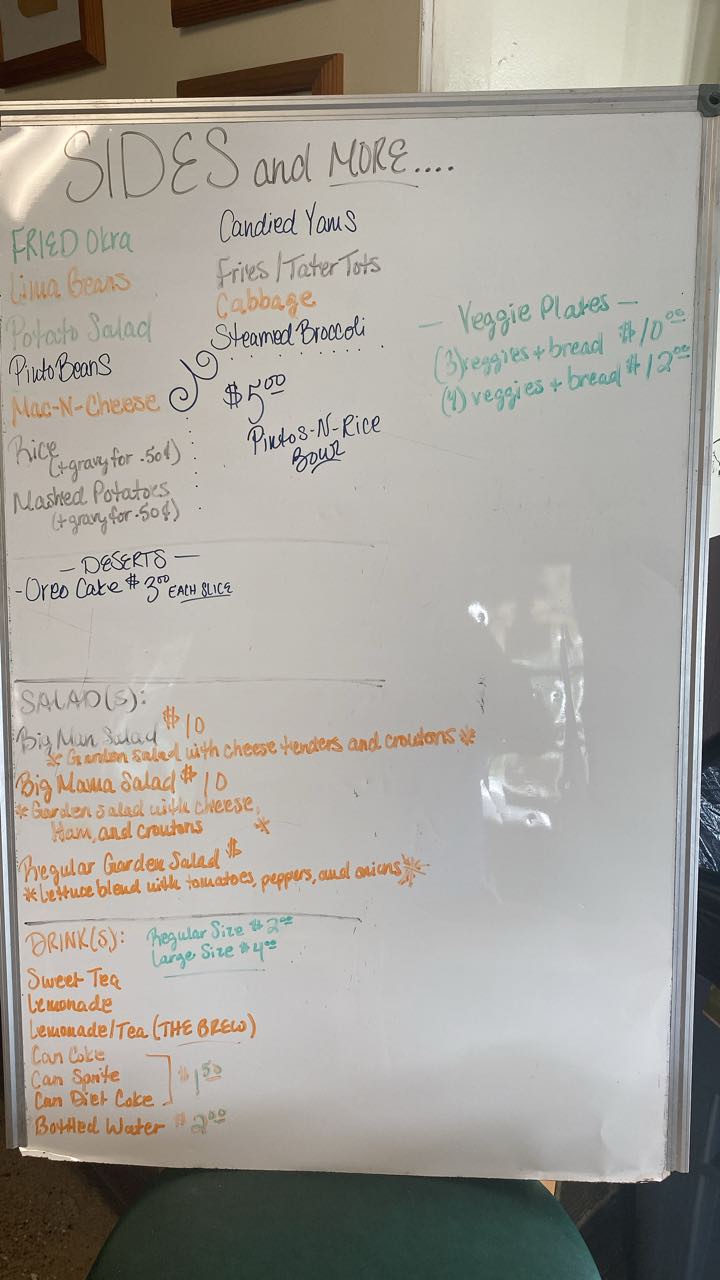 SIDES and MORE....
FRIED Okra
Lima Beans
Potato Salad
Pinto Beans
Mac-N-Cheese
Rice
(+gravy for .50¢)
Mashed Potatoes
(+gravy for .50¢)
Candied Yams
Fries/Tater Tots
Cabbage
Steamed Broccoli
$5.00
Pintos-N-Rice
Bowl
- Veggie Plates -
(3) veggies + bread $10.00
(4) veggies + bread $12.00
- DESERTS -
-Oreo Cake $3.00 EACH SLICE
SALAD(S):
Big Man Salad $10
* Garden salad with cheese tenders and croutons *
Big Mama Salad $10
* Garden salad with cheese,
Ham, and croutons *
Regular Garden Salad $
* Lettuce blend with tomatoes, peppers, and onions *
DRINK(S): Regular Size $2.00
Large Size $4.00
Sweet Tea
Lemonade
Lemonade/Tea (THE BREW)
Can Coke
Can Sprite $1.50
Can Diet Coke
Bottled Water $2.00